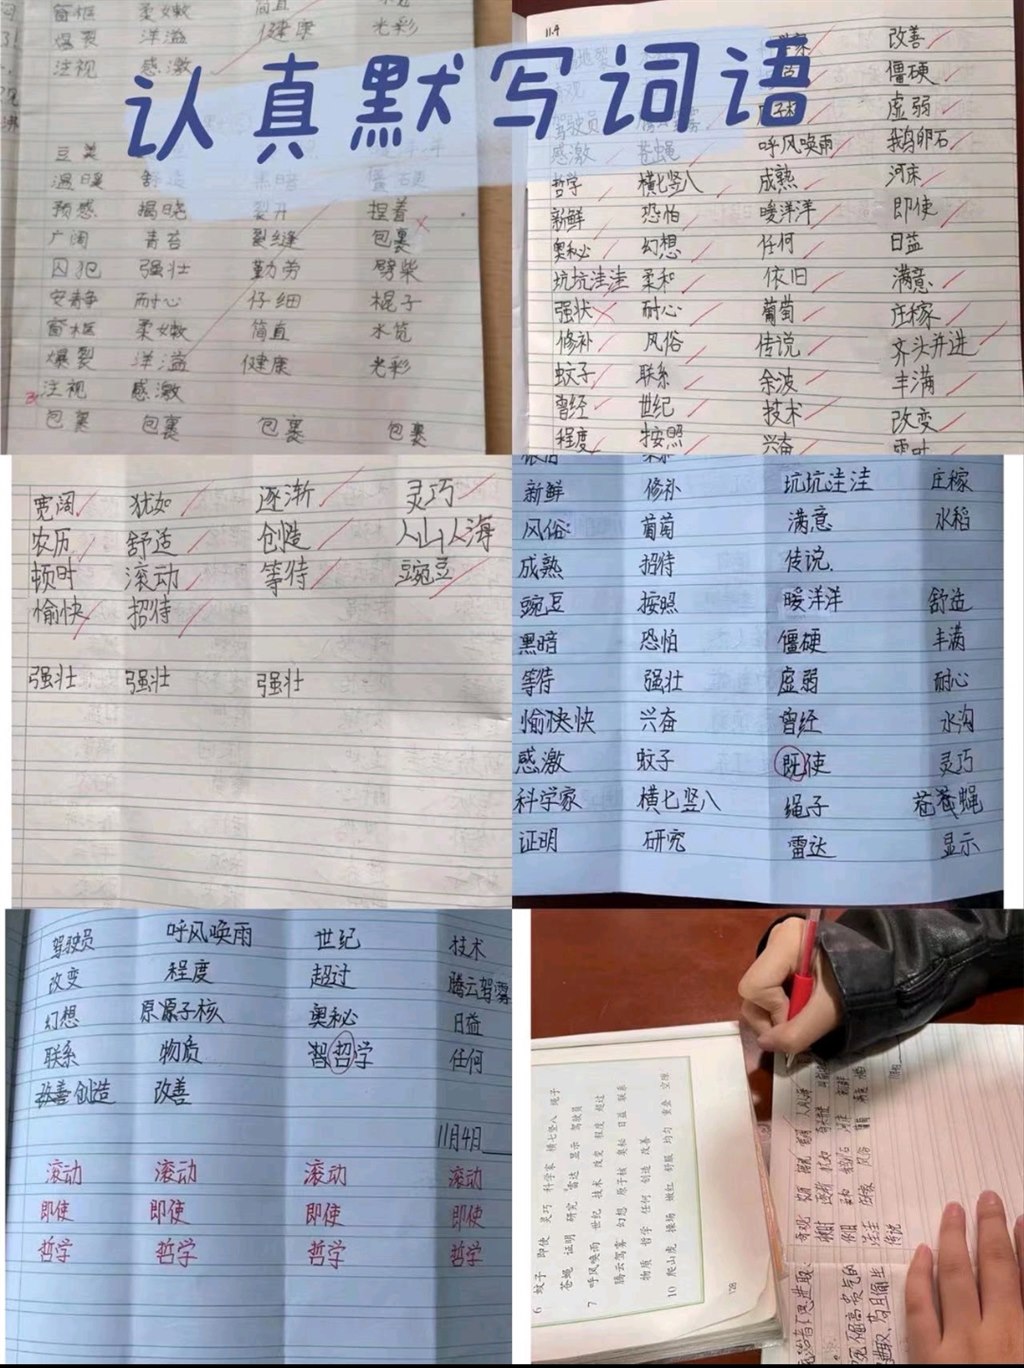 认真默写词语
窗框 柔嫩 简直
爆裂 洋溢 健康 光彩
注视 感激
豆荚
温暖 舒适 黑暗 僵硬
预感 揭晓 裂开 捏着
广阔 青苔 裂缝 包裹
囚犯 强壮 勤劳 劈柴
安静 耐心 仔细 棍子
窗框 柔嫩 简直 水笕
爆裂 洋溢 健康 光彩
注视 感激
包裹 包裹 包裹 包裹
11.4
改善
僵硬
驾驶员 虚弱
感激 苍蝇 呼风唤雨 鹅卵石
哲学 横七竖八 成熟 河床
新鲜 恐怕 暖洋洋 即使
奥秘 幻想 任何 日益
坑坑洼洼 柔和 依旧 满意
强状 耐心 葡萄 庄稼
修补 风俗 传说 齐头并进
蚊子 联系 余波 丰满
曾经 世纪 技术 改变
程度 按照 兴奋
宽阔 犹如 逐渐 灵巧
农历 舒适 创造 人山人海
顿时 滚动 等待 豌豆
愉快 招待
强壮 强壮 强壮
新鲜 修补 坑坑洼洼 庄稼
风俗 葡萄 满意 水稻
成熟 招待 传说
豌豆 按照 暖洋洋 舒适
黑暗 恐怕 僵硬 丰满
等待 强壮 虚弱 耐心
愉快 兴奋 曾经 水沟
感激 蚊子 既使 灵巧
科学家 横七竖八 绳子 苍蝇
证明 研究 雷达 显示
驾驶员 呼风唤雨 世纪 技术
改变 程度 超过 腾云驾雾
幻想 原子核 奥秘 日益
联系 物质 哲学 任何
创造 改善
11月4日
滚动 滚动 滚动 滚动
即使 即使 即使 即使
哲学 哲学 哲学 哲学
6 蚊子 即使 灵巧 科学家 横七竖八 绳子
苍蝇 证明 研究 雷达 显示 驾驶员
7 呼风唤雨 世纪 技术 改变 程度 超过
腾云驾雾 幻想 原子核 奥秘 日益 联系
物质 哲学 任何 创造 改善
10 爬山虎 操场 嫩红 舒服 均匀 重叠 空隙
128